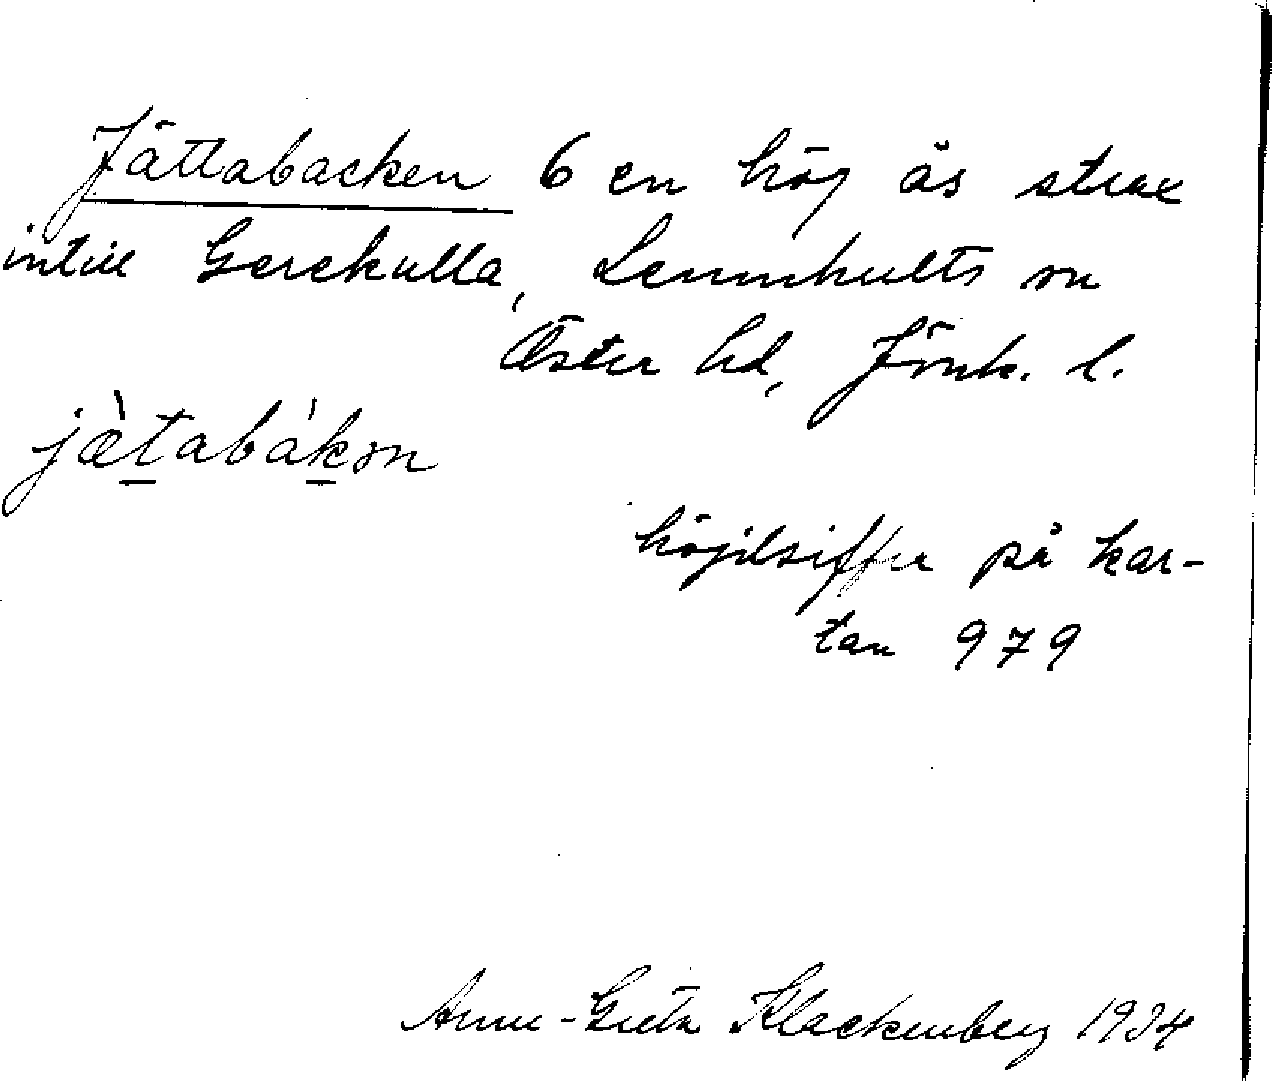 Jättabacken 6 en hög ås strax
intill Gerekulla, Lemnhults sn
Öster hd, Jönk. l.
jæ̀tabákən
höjdsiffer på kar-
tan 979
Anna-Greta Klackenberg 1934